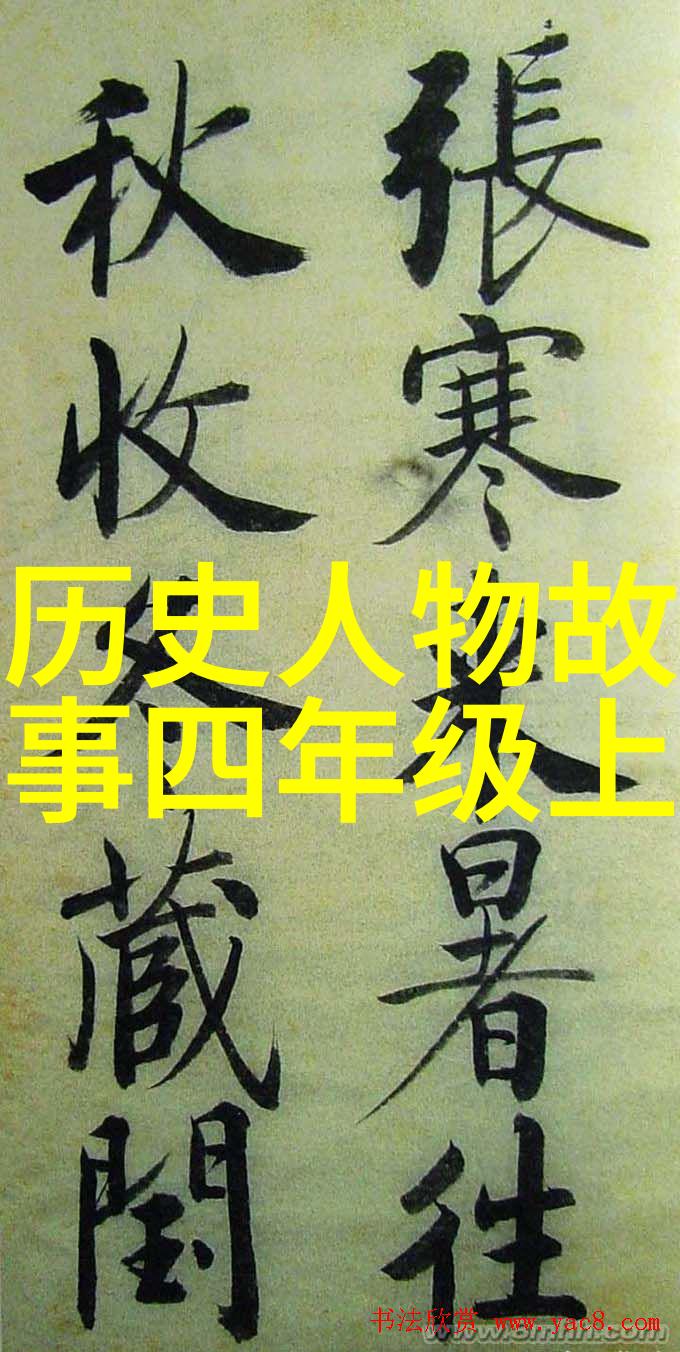 張寒来暑往
秋收冬蔵閏
历史人物故
事四年级上
书法欣赏 www.yac8.com